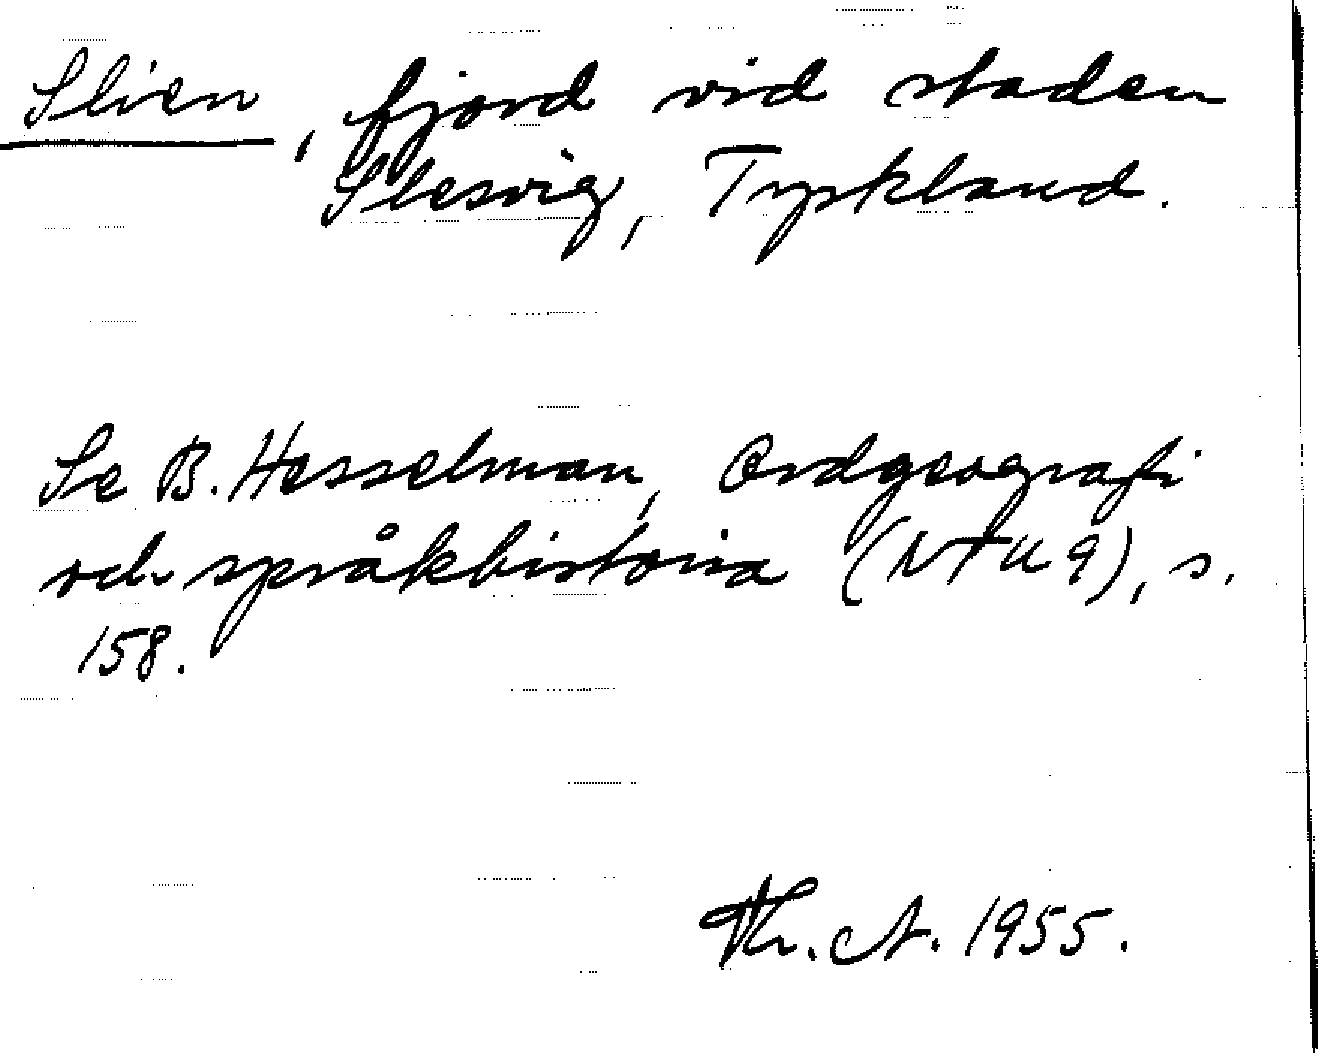 Slien, fjord vid staden
Slesvig, Tyskland.
Se B. Hesselman, Ordgeografi
och språkhistoria (NTU 9), s.
158.
Th. A. 1955.